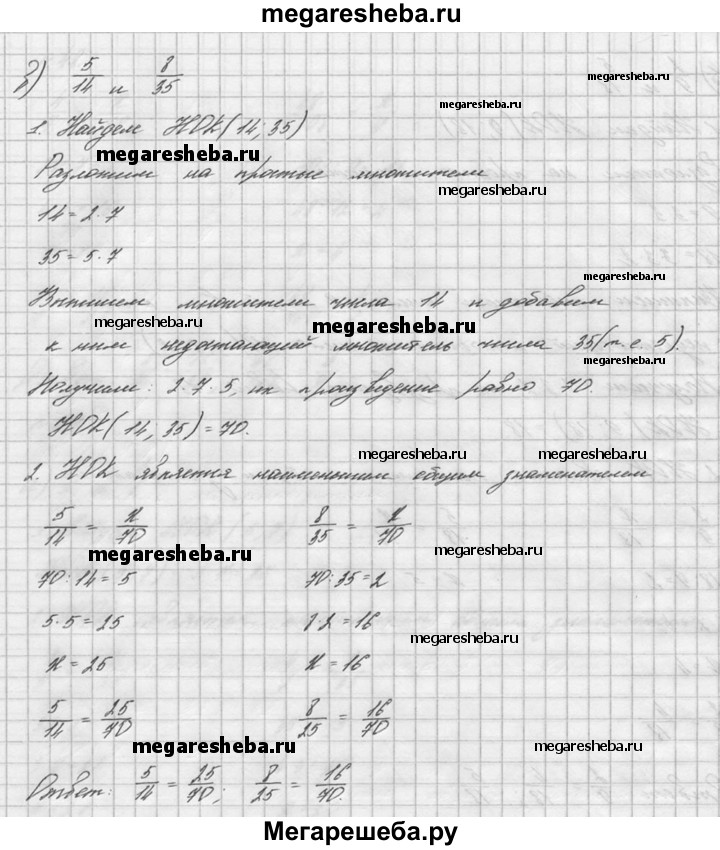 megaresheba.ru
2) 5/14 и 8/35
megaresheba.ru
megaresheba.ru
1. Найдем НОК(14; 35)
megaresheba.ru
Разложим на простые множители
megaresheba.ru
14 = 2·7
35 = 5·7
megaresheba.ru
Выпишем множители числа 14 и добавим
megaresheba.ru megaresheba.ru
к ним недостающий множитель числа 35 (т.е. 5).
megaresheba.ru
Получили: 2·7·5, их произведение равно 70.
НОК(14, 35) = 70.
megaresheba.ru megaresheba.ru
2. НОК является наименьшим общим знаменателем
5/14 = x/70 8/35 = x/70
megaresheba.ru megaresheba.ru
70:14 = 5 70:35 = 2
5·5 = 25 8·2 = 16
megaresheba.ru
x = 25 x = 16
5/14 = 25/70 8/25 = 16/70
megaresheba.ru megaresheba.ru
Ответ: 5/14 = 25/70; 8/25 = 16/70.
Мегарешеба.ру